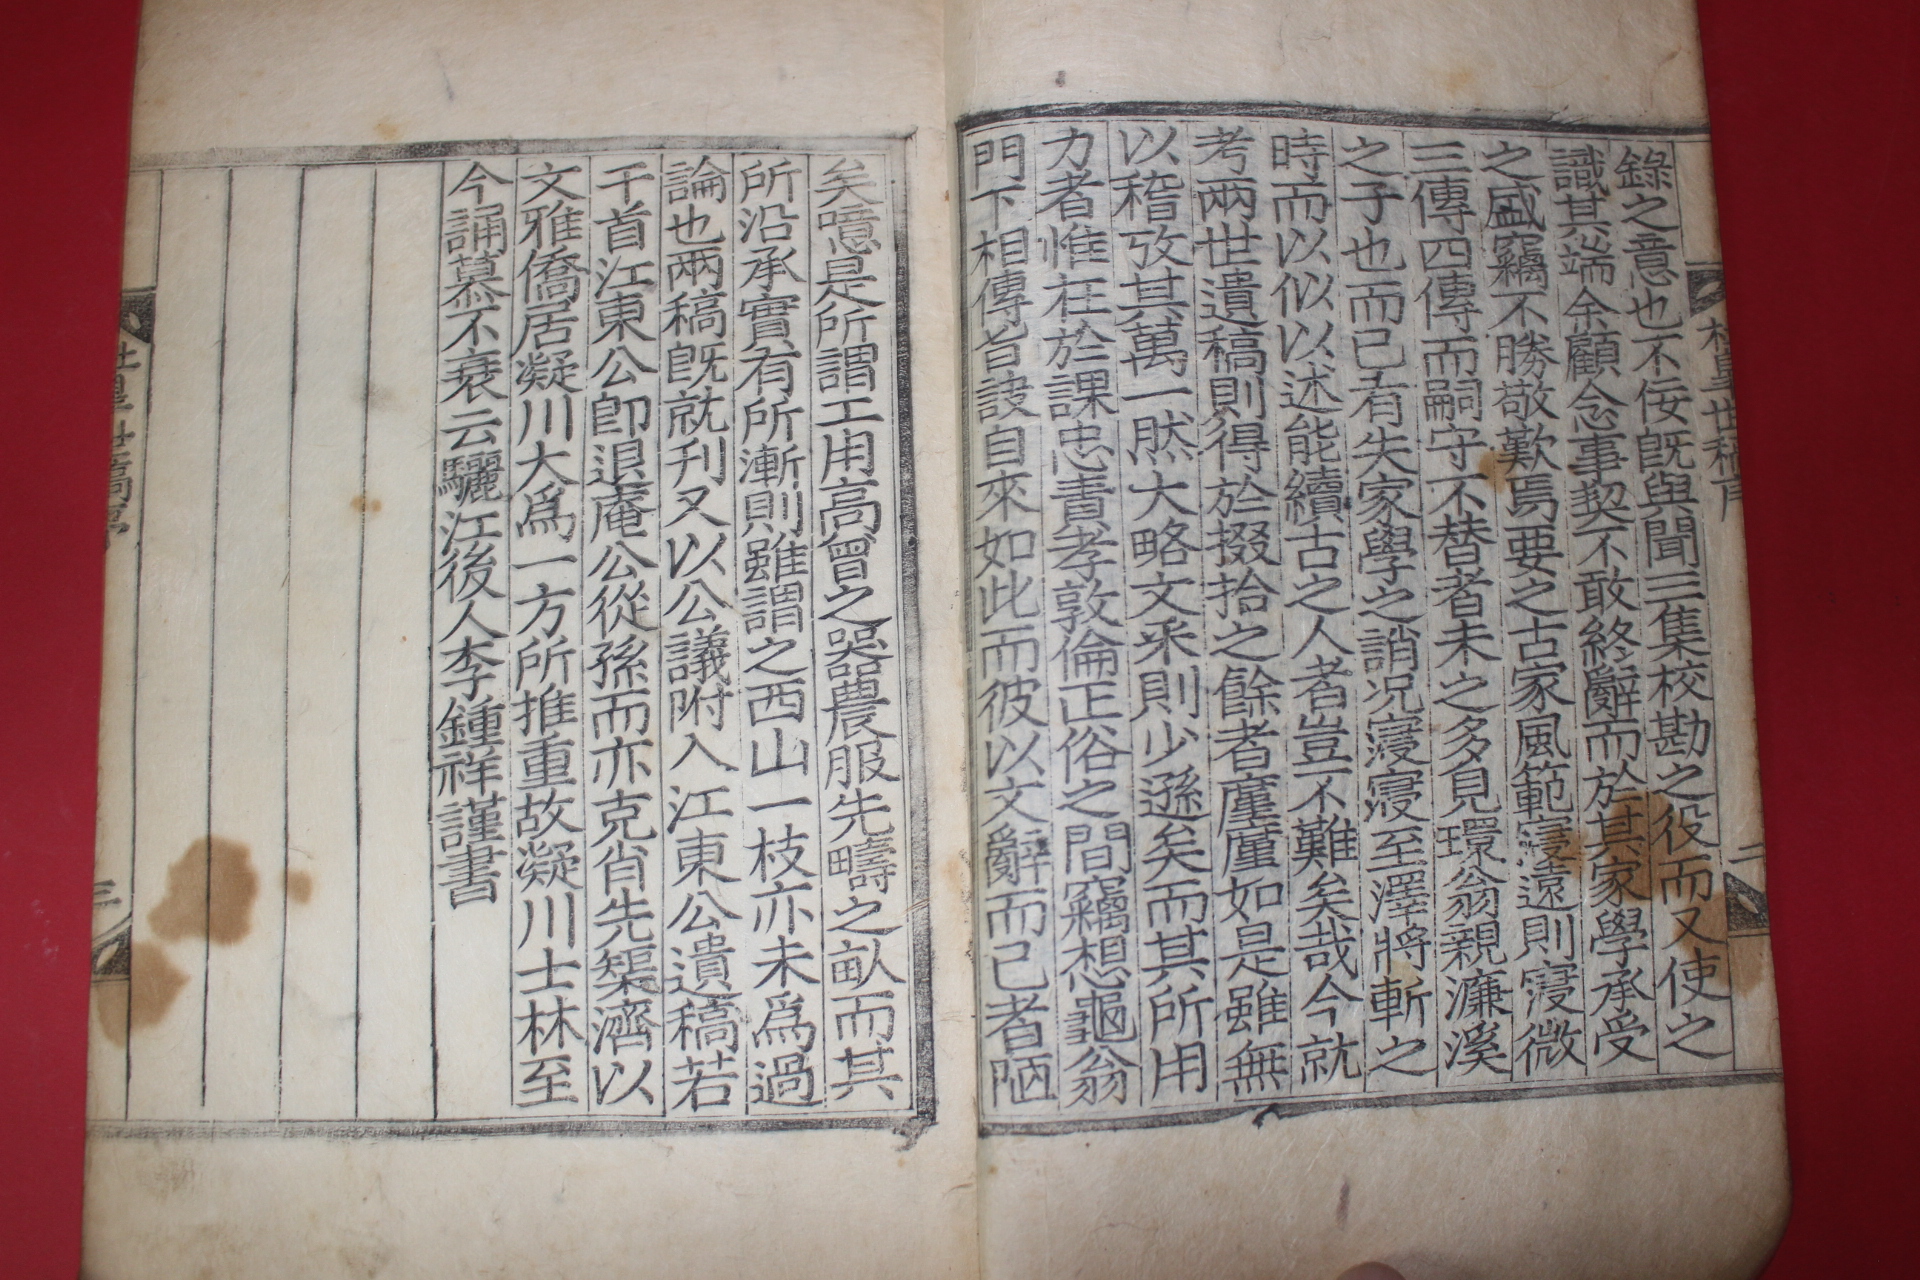 錄之意也不佞旣與聞三集校勘之役而又使之
識其端余顧念事契不敢終辭而於其家學承受
之盛竊不勝敬歎焉要之古家風範寖遠則寖微
三傳四傳而嗣守不替者未之多見環翁親濂溪
之子也而已有失家學之誚况寖寖至澤將斬之
時而以似以述能續古之人者豈不難矣哉今就
考兩世遺稿則得於掇拾之餘者廑廑如是雖無
以稽攷其萬一然大略文釆則少遜矣而其所用
力者惟在於課忠責孝敦倫正俗之間竊想龜翁
門下相傳旨訣自來如此而彼以文辭而已者陋
矣噫是所謂工用高曾之器農服先疇之畝而其
所沿承實有所漸則雖謂之西山一枝亦未爲過
論也兩稿旣就刋又以公議附入江東公遺稿若
干首江東公卽退庵公從孫而亦克肖先榘濟以
文雅僑居凝川大爲一方所推重故凝川士林至
今誦慕不衰云驪江後人李鍾祥謹書
三